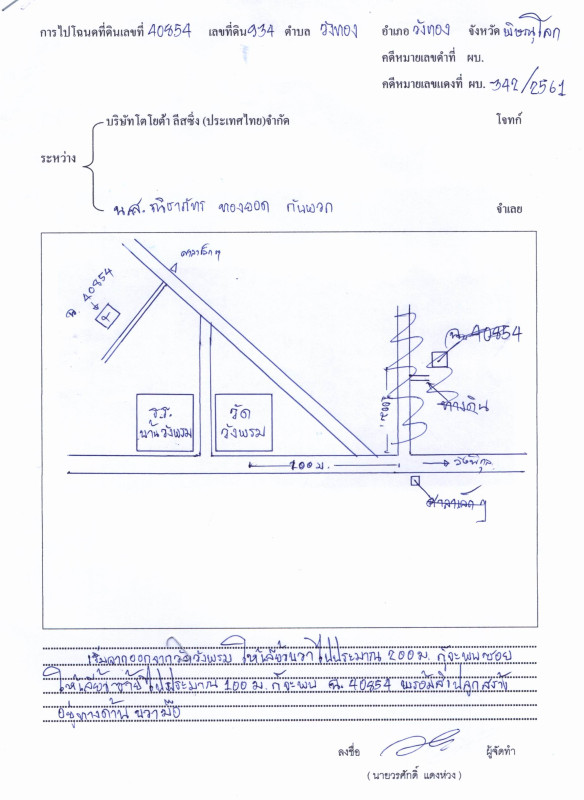 การไปโฉนดที่ดินเลขที่ 40854 เลขที่ดิน 934 ตำบล วังทอง อำเภอ วังทอง จังหวัด พิษณุโลก
คดีหมายเลขดำที่ ผบ.
คดีหมายเลขแดงที่ ผบ. 342/2561
บริษัทโตโยต้า ลีสซิ่ง (ประเทศไทย)จำกัด โจทก์
ระหว่าง
น.ส. ทองออด กันพวก จำเลย
ศาลาเล็กๆ
ฉ. 40854
ฉ. 40854
ทางดิน
200 ม.
ร.ร. บ้านวังพรม
วัด วังพรม
100 ม.
วัดพิกุล
ศาลาเล็กๆ
เริ่มจากออกจากวัดวังพรม ให้เลี้ยวขวาไปประมาณ 200 ม. ก็จะพบซอย
ให้เลี้ยวซ้ายไปประมาณ 100 ม. ก็จะพบ ฉ. 40854 พร้อมสิ่งปลูกสร้าง
อยู่ทางด้านขวามือ
ลงชื่อ ผู้จัดทำ
(นายวรศักดิ์ แดงห่วง)